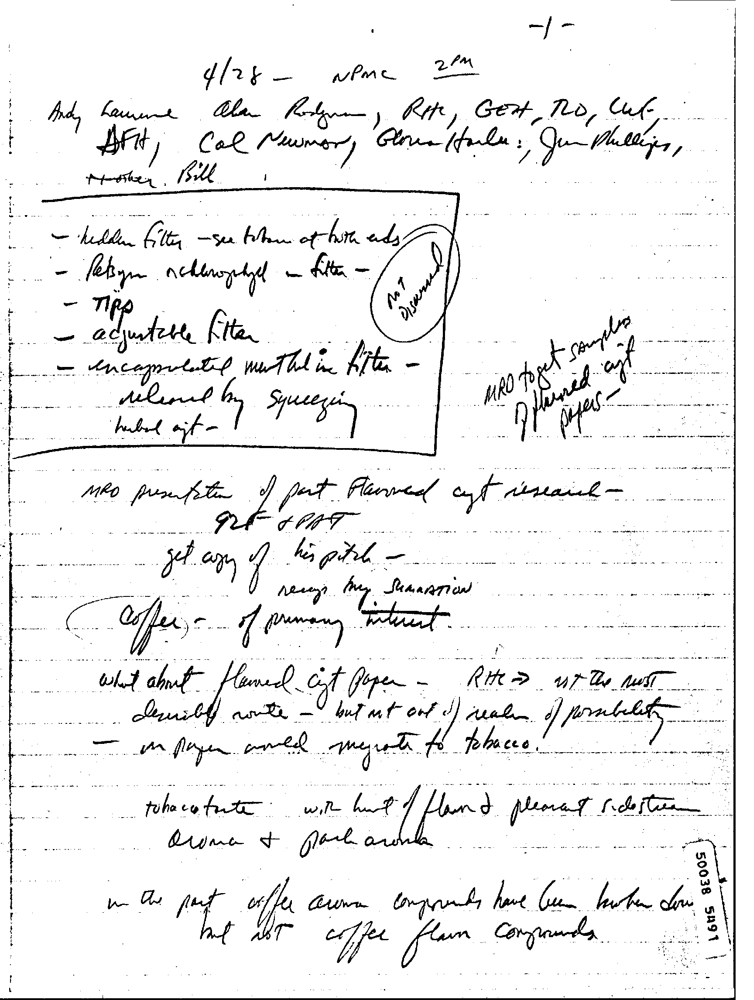 -1-
4/28 - NPMC 2PM
Andy Laurence Alan Rodgman, RHC, GEH, TLO,
AFH, Cal Newman, Gloria Harlee, Jim Phillips,
Bill
- hidden filter - see tobacco at both ends
- chlorophyl in filter -
Not
Discussed
- Tips
- adjustable filter
- encapsulated menthol in filter -
released by squeezing
herbal cigt -
MRO to get samples
of flavored cigt
papers -
MRO presentation of past Flavored cigt research -
get copy of his pitch -
my summation
Coffee - of primary interest.
what about flavored cigt paper - RHC ⇒ not the most
desirable route - but not out of realm of possibility
- on paper would migrate to tobacco.
tobacco taste with hint of flavor & pleasant sidestream
aroma & pack aroma
in the past coffee aroma compounds have been broken down
but not coffee flavor compounds
50038 5491